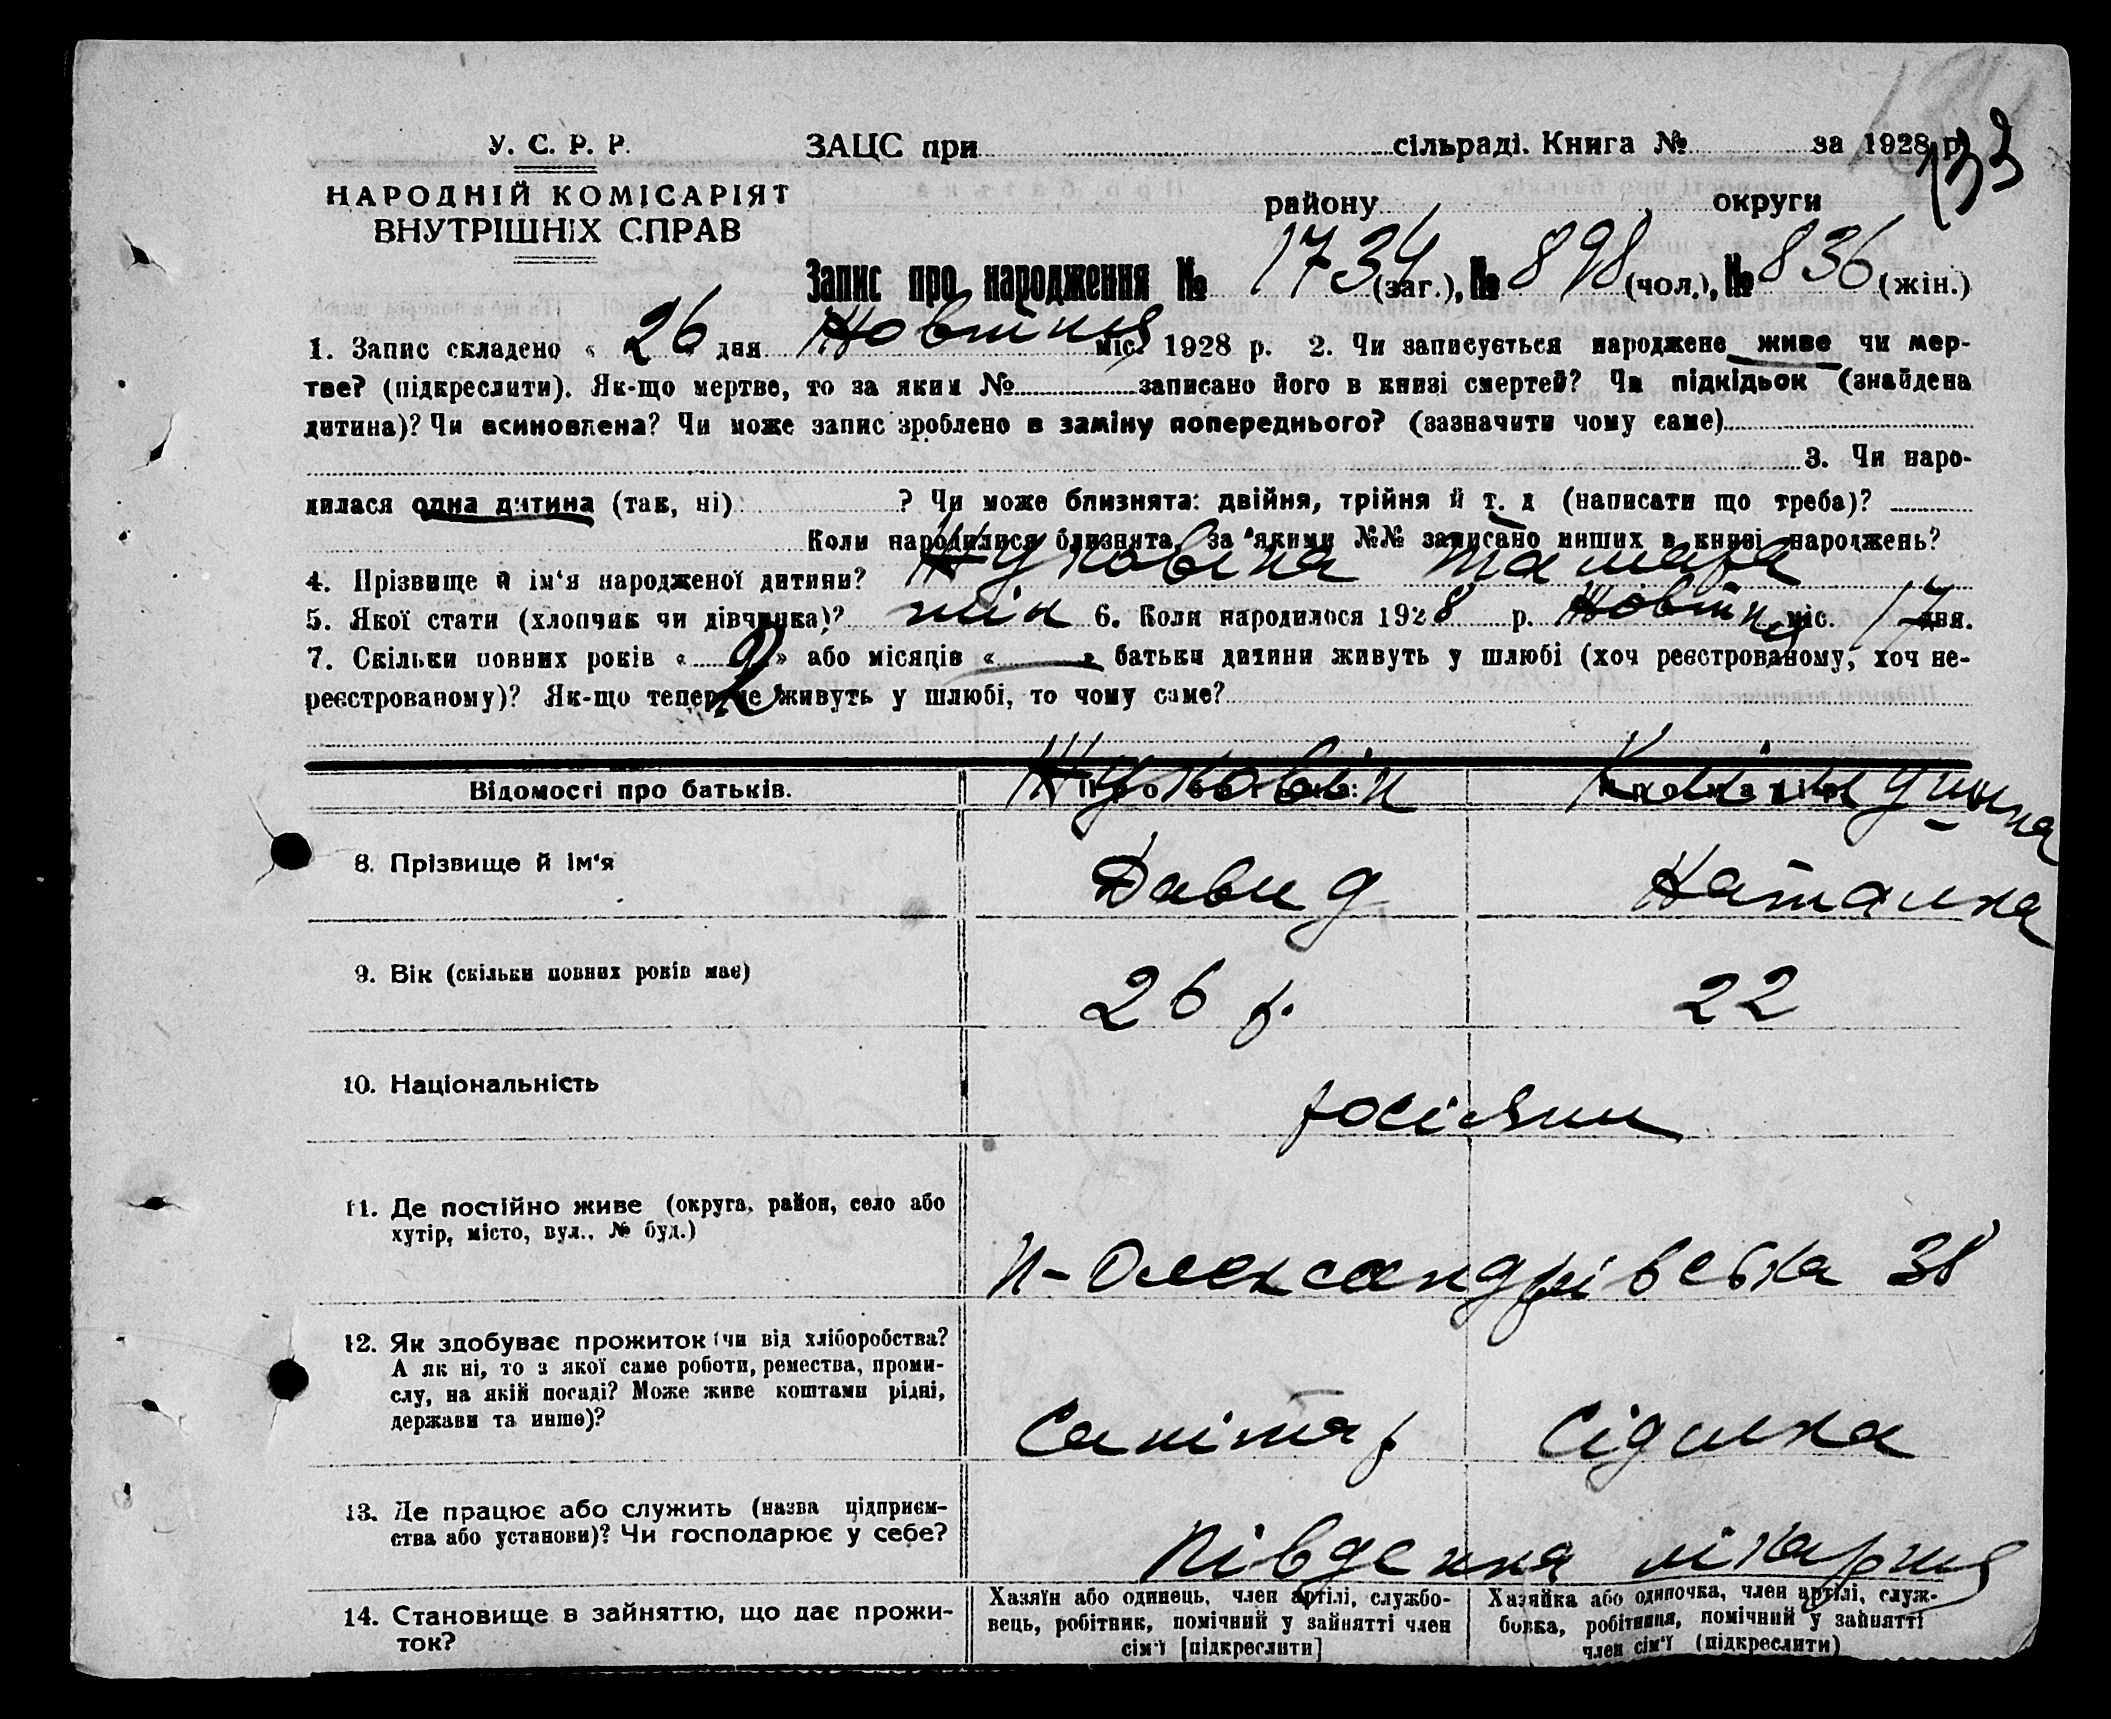 133
У. С. Р. Р.
НАРОДНІЙ КОМІСАРІЯТ
ВНУТРІШНІХ СПРАВ
ЗАЦС при сільраді. Книга № за 1928 р.
району округи
Запис про народження № 1734 (заг.), № 898 (чол.), № 836 (жін.)
1. Запис складено « 26 » дня Жовтня міс. 1928 р. 2. Чи записується народжене живе чи мер-
тве? (підкреслити). Як-що мертве, то за яким № записано його в книзі смертей? Чи підкідьок (знайдена
дитина)? Чи всиновлена? Чи може запис зроблено в заміну попереднього? (зазначити чому саме)
3. Чи наро-
дилася одна дитина (так, ні) ? Чи може близнята: двійня, трійня й т. д (написати що треба)?
Коли народилися близнята, за якими №№ записано инших в книзі народжень?
4. Прізвище й ім‘я народженої дитини? Жуковіна Тамара
5. Якої стати (хлопчик чи дівчинка)? жін 6. Коли народилося 1928 р. Жовтня міс. 17 дня.
7. Скільки повних років « 2 » або місяців « — » батьки дитини живуть у шлюбі (хоч реєстрованому, хоч не-
реєстрованому)? Як-що тепер не живуть у шлюбі, то чому саме?
Відомості про батьків.
8. Прізвище й ім‘я Жуковін Давид
9. Вік (скільки повних років має) 26 р. 22
10. Національність росіяни
11. Де постійно живе (округа, район, село або
хутір, місто, вул., № буд.) Н-Олександрівська 38
12. Як здобуває прожиток (чи від хліборобства?
А як ні, то з якої саме роботи, ремества, проми-
слу, на якій посаді? Може живе коштами рідні,
держави та инше)? Санітар Сіділка
13. Де працює або служить (назва підприєм-
ства або установи)? Чи господарює у себе? Південна лікарня
14. Становище в зайняттю, що дає прожи-
ток?
Хазяїн або одинець, член артілі, службо-
вець, робітник, помічний у зайнятті член
сім‘ї [підкреслити]
Хазяйка або одиночка, член артілі, служ-
бовка, робітниця, помічний у зайнятті
член сім‘ї (підкреслити)